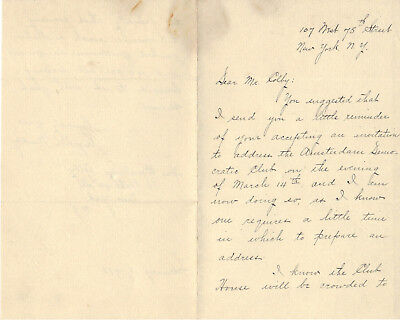 107 West 75th Street
New York N.Y.
Dear Mr. Colby:
You suggested that
I send you a little reminder
of your accepting an invitation
to address the Amsterdam Demo-
cratic Club on the evening
of March 14th and I am
now doing so, as I know
one requires a little time
in which to prepare an
address.
I know the Club
House will be crowded to